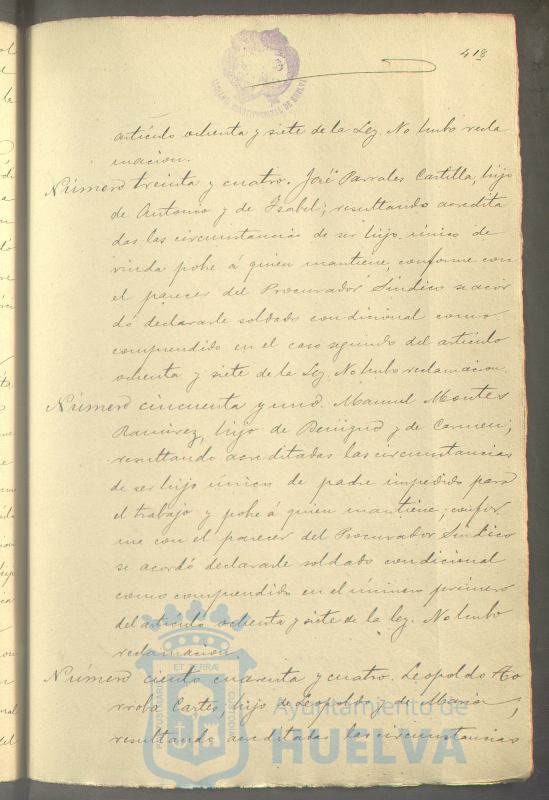 418
artículo ochenta y siete de la Ley. No hubo recla
macion.
Número treinta y cuatro. José Parrales Castilla, hijo
de Antonio y de Isabel; resultando acredita
das las circunstancias de ser hijo único de
viuda pobre á quien mantiene, conforme con
el parecer del Procurador Síndico se acor
dó declararle soldado condicional como
comprendido en el caso segundo del artículo
ochenta y siete de la Ley. No hubo reclamacion.
Número cincuenta y uno. Manuel Montes
Ramírez, hijo de Benigno y de Carmen;
resultando acreditadas las circunstancias
de ser hijo único de padre impedido para
el trabajo y pobre á quien mantiene; confor
me con el parecer del Procurador Síndico
se acordó declararle soldado condicional
como comprendido en el número primero
del artículo ochenta y siete de la ley. No hubo
reclamacion.
Número ciento cuarenta y cuatro. Leopoldo
Cartes, hijo de Leopoldo y de María;
resultando acreditadas las circunstancias
Ayuntamiento de
HUELVA